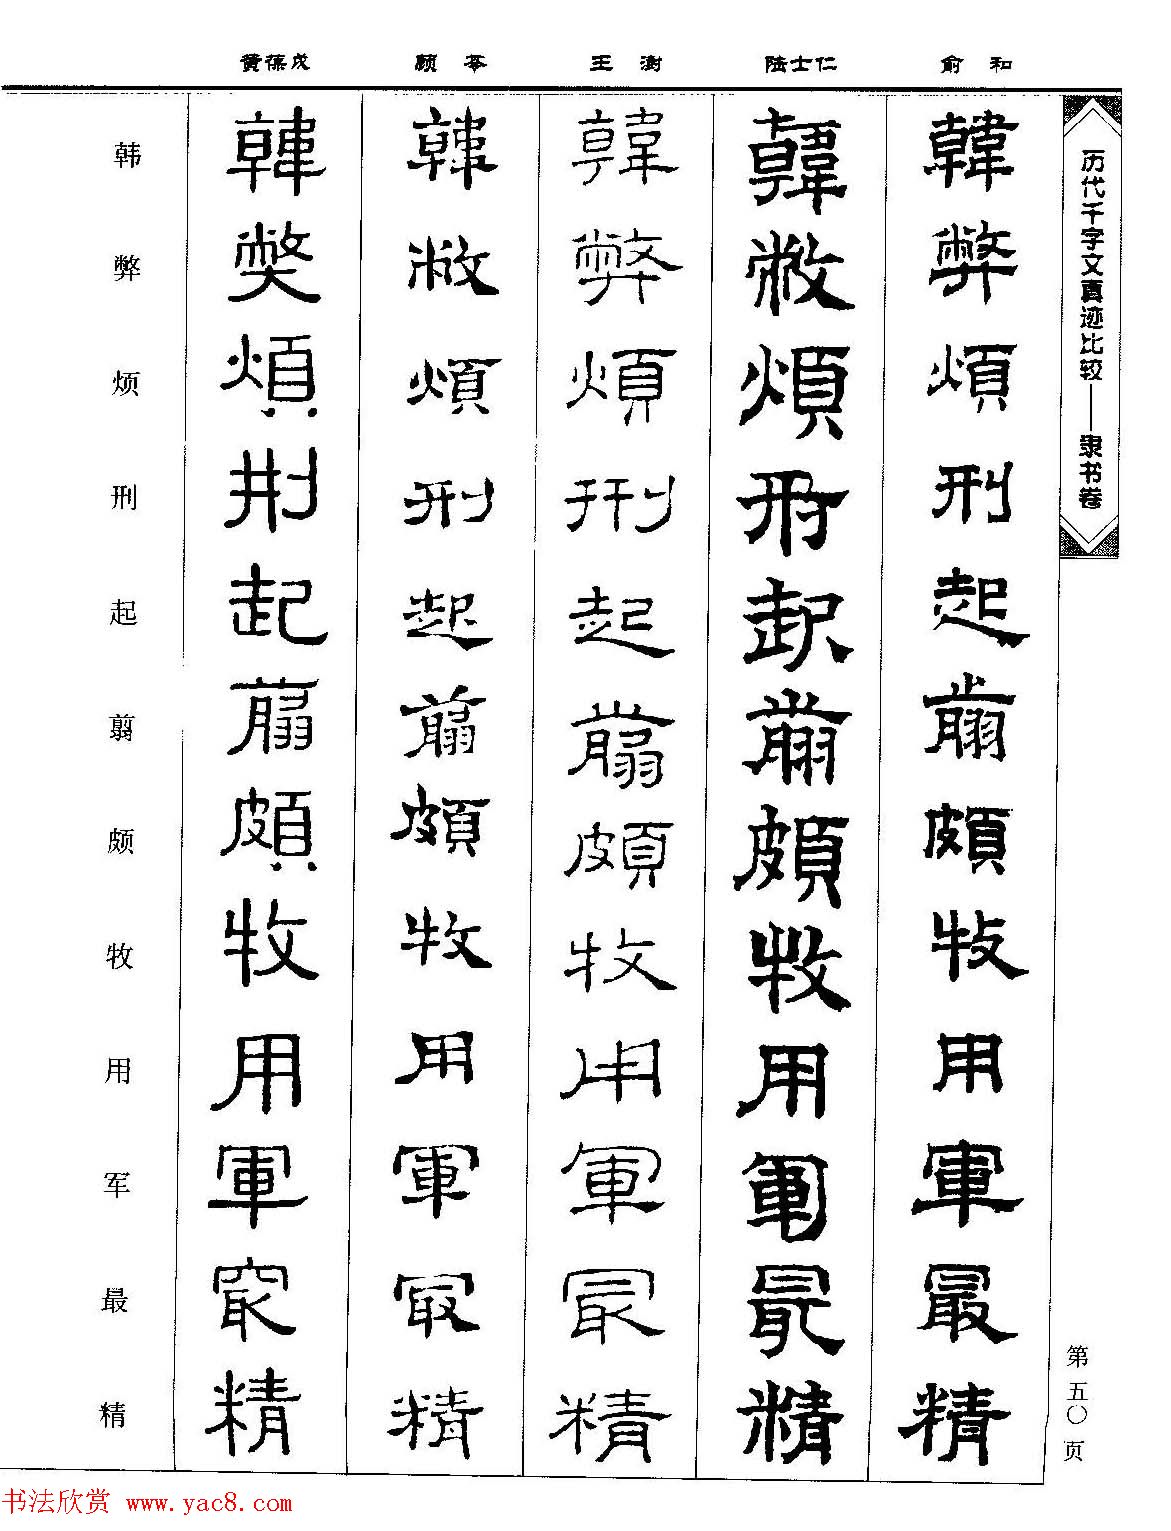 俞和
陆士仁
王澍
顾苓
黄葆戉
历代千字文真迹比较——隶书卷
第五〇页
韓弊煩刑起翦頗牧用軍最精
韓敝煩刑起翦頗牧用軍最精
韓弊煩刑起翦頗牧用軍最精
韓敝煩刑起翦頗牧用軍最精
韓獘煩刑起翦頗牧用軍最精
韩弊烦刑起翦颇牧用军最精
书法欣赏 www.yac8.com